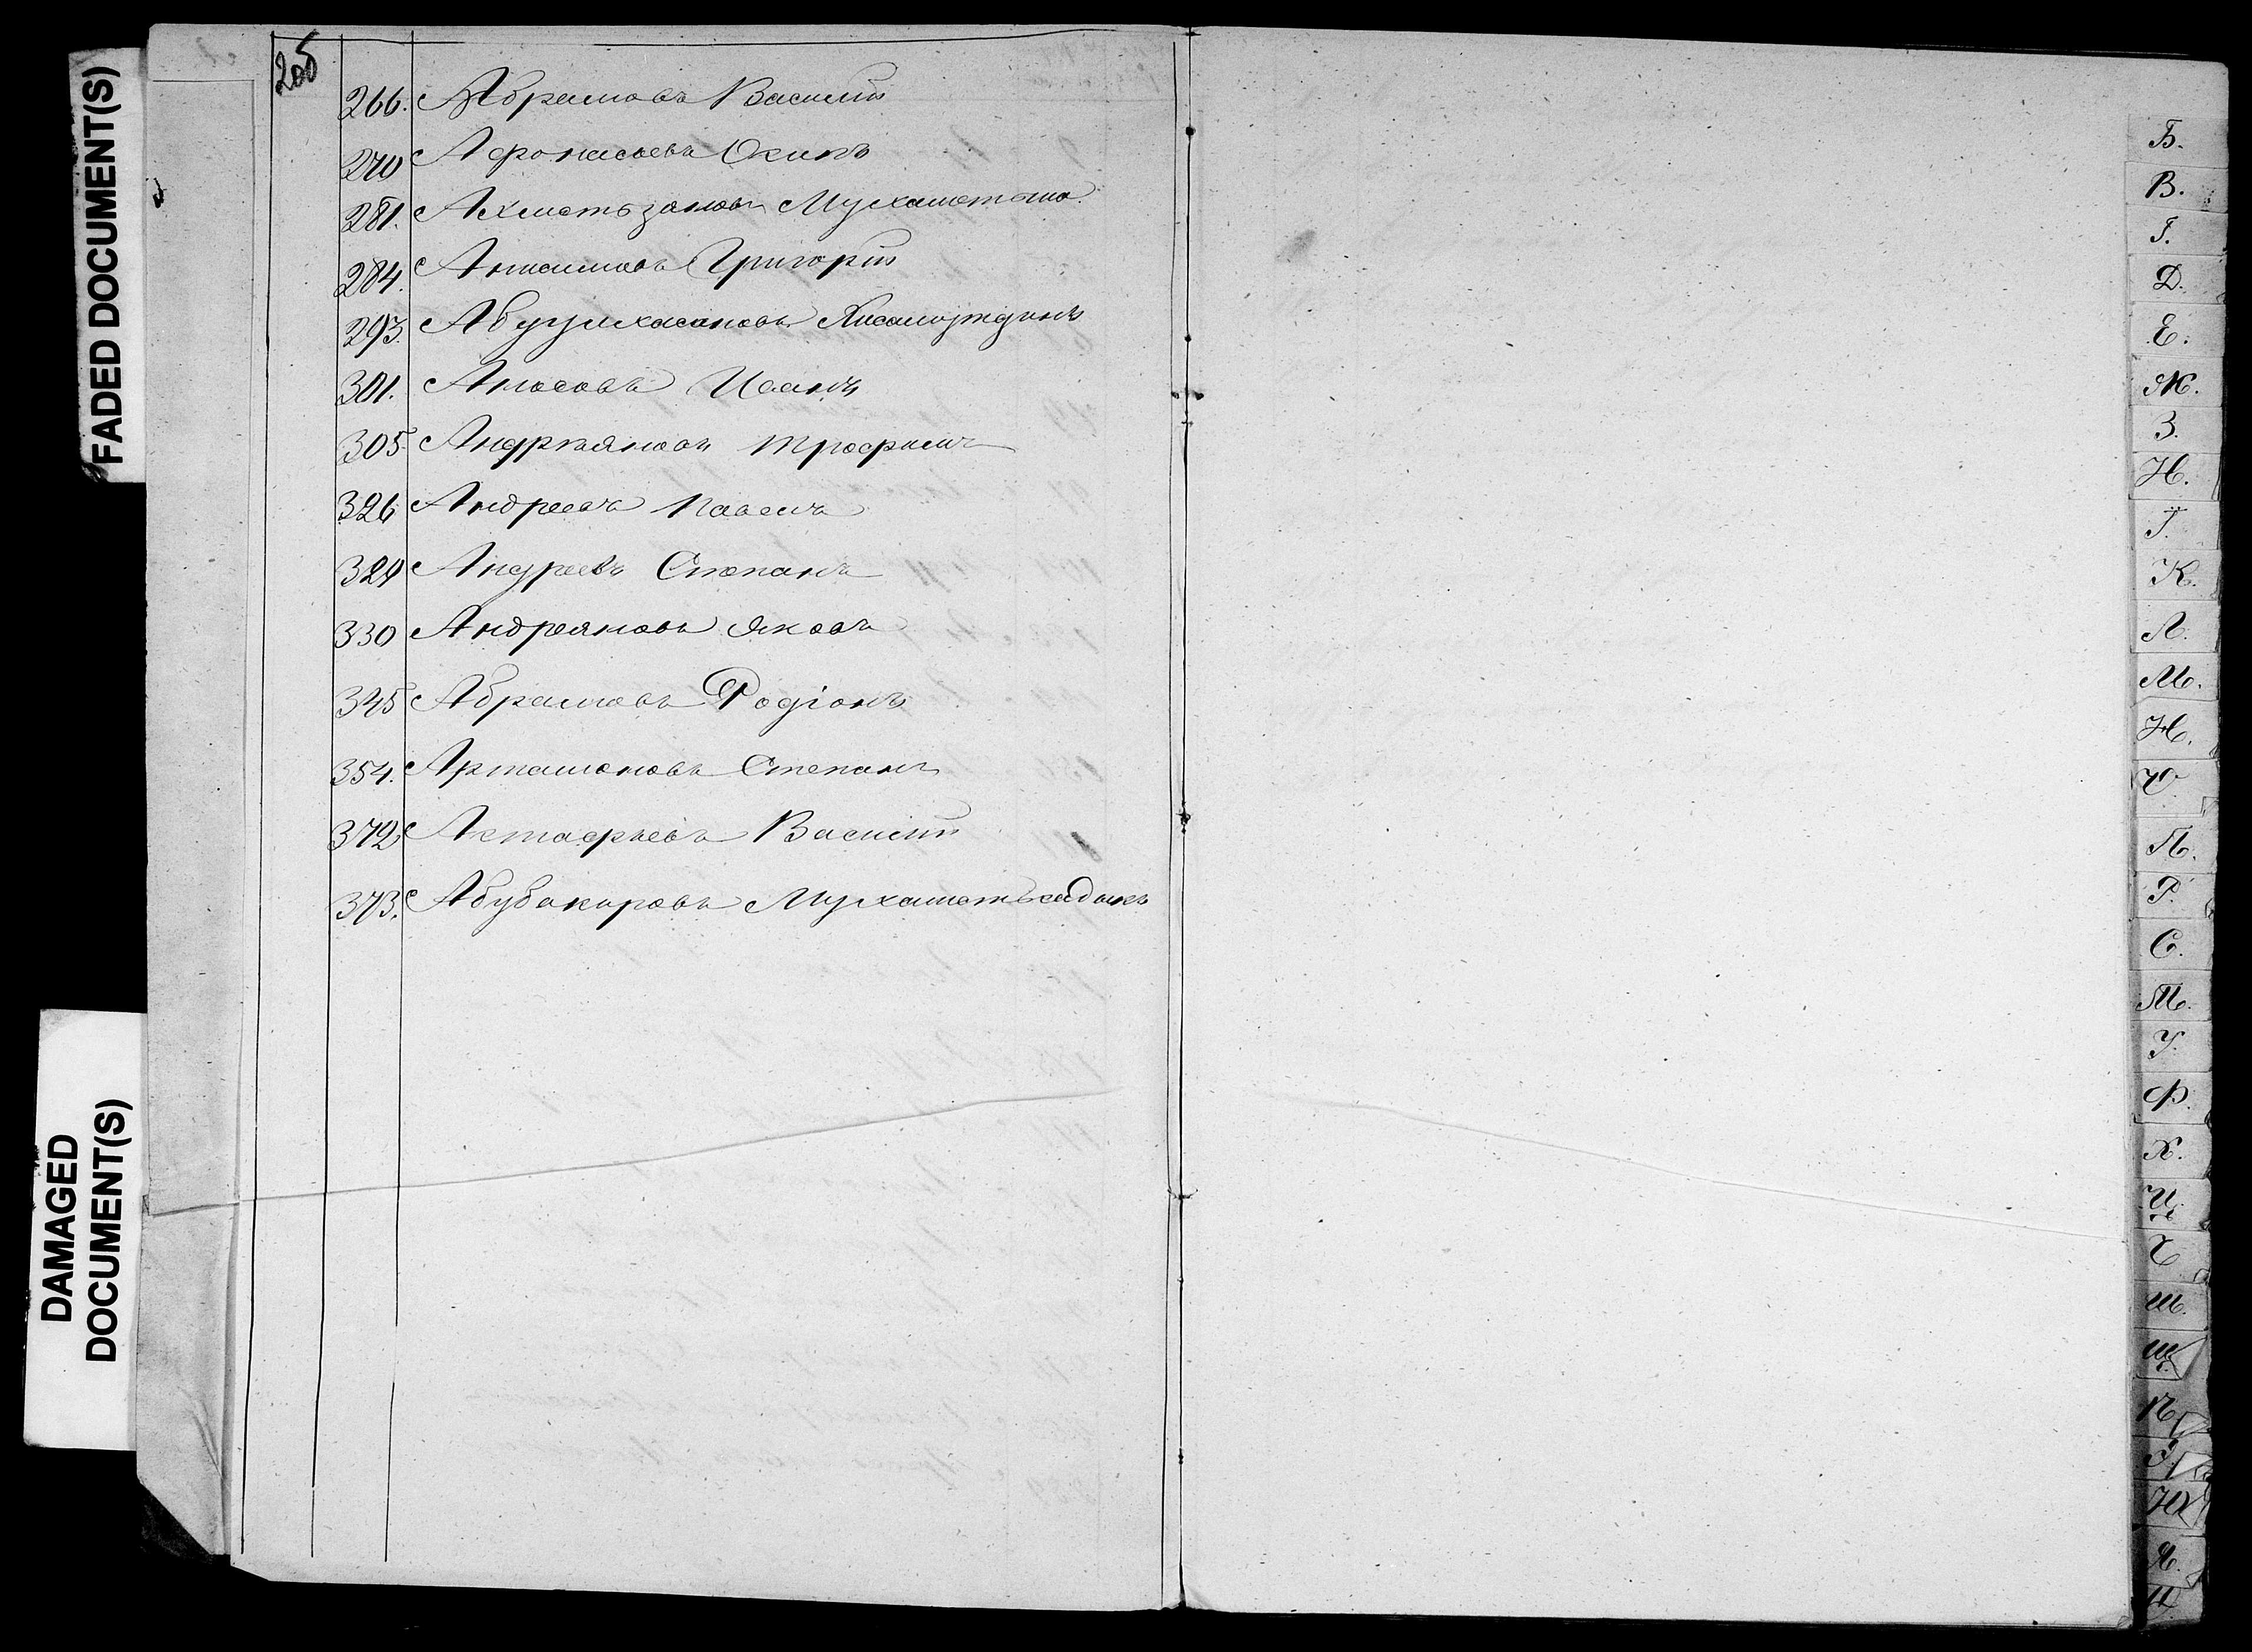 FADED DOCUMENT(S)
DAMAGED
DOCUMENT(S)
205
266. Абрамовъ Василій
270 Афонасьевъ Осипъ
281. Ахметьзяновъ Мухаметьша
284. Антамовъ Григорій
293. Абдулхасановъ
301. Аносовъ Иванъ
305. Андрѣяновъ Трофимъ
326 Андреевъ Павелъ
329 Андреевъ Степанъ
330 Андреяновъ Яковъ
345 Абрамовъ Родіонъ
354. Артамоновъ Степанъ
372 Астафьевъ Василій
373. Абубакировъ Мухаметьсадыкъ
Б.
В.
Г.
Д.
Е.
Ж.
З.
И.
І.
К.
Л.
М.
Н.
О
П.
Р.
С.
Т.
У.
Ф.
Х.
Ц.
Ч
Ш.
Щ.
Ѣ
Э
Ю
Я.